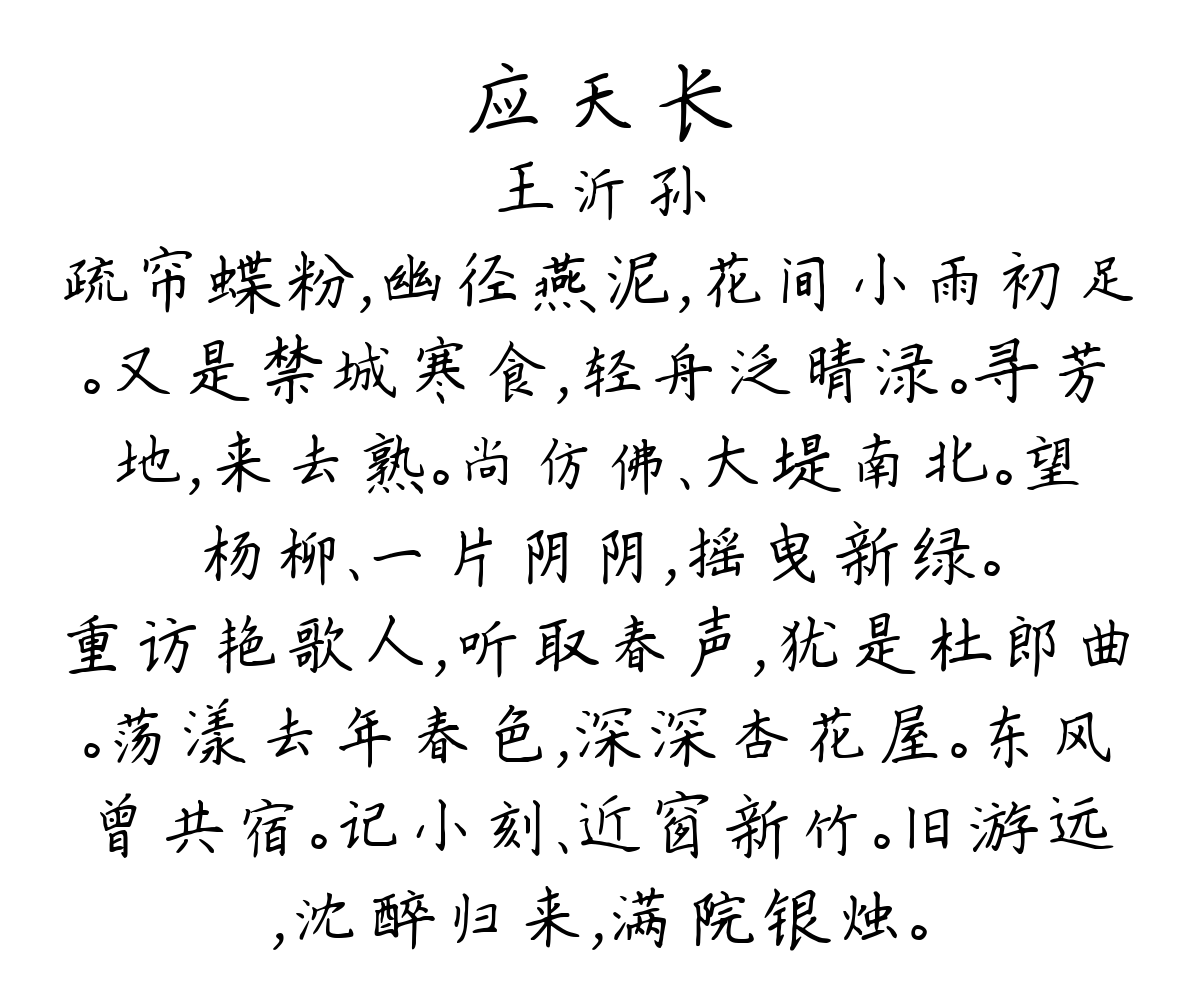 应天长
王沂孙
疏帘蝶粉,幽径燕泥,花间小雨初足
。又是禁城寒食,轻舟泛晴渌。寻芳
地,来去熟。尚仿佛、大堤南北。望
杨柳、一片阴阴,摇曳新绿。
重访艳歌人,听取春声,犹是杜郎曲
。荡漾去年春色,深深杏花屋。东风
曾共宿。记小刻、近窗新竹。旧游远
,沈醉归来,满院银烛。